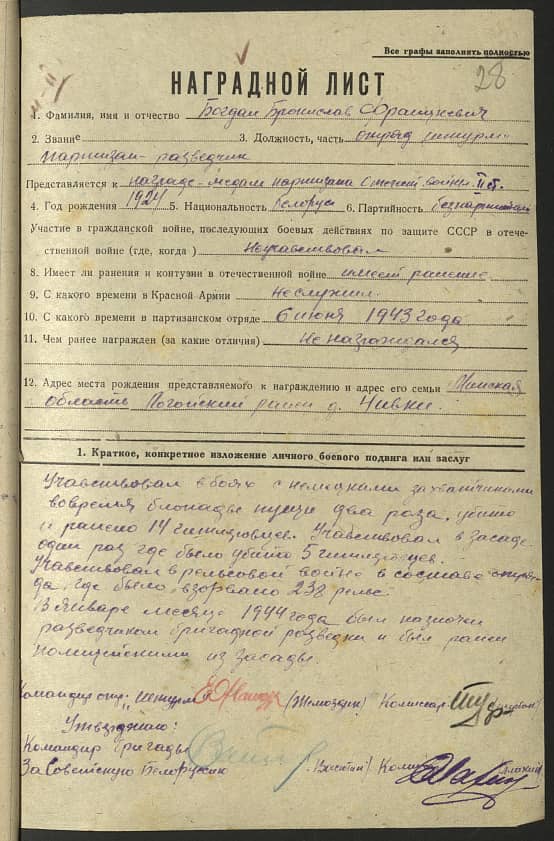 Все графы заполнять полностью
28
НАГРАДНОЙ ЛИСТ
1. Фамилия, имя и отчество Богдан Бронислав Францкевич
2. Звание 3. Должность, часть отряд Штурм
партизан-разведчик
Представляется к награде-медали партизана Отечест. войны II ст.
4. Год рождения 1924 5. Национальность белорус 6. Партийность беспартийн
Участие в гражданской войне, последующих боевых действиях по защите СССР в отече-
ственной войне (где, когда) Неучавствовал
8. Имеет ли ранения и контузии в отечественной войне имеет ранение
9. С какого времени в Красной Армии Неслужил
10. С какого времени в партизанском отряде 6 июня 1943 года
11. Чем ранее награжден (за какие отличия) Не награждался
12. Адрес места рождения представляемого к награждению и адрес его семьи Минская
область Логойский район д. Чивки.
1. Краткое, конкретное изложение личного боевого подвига или заслуг
Учавствовал в боях с немецкими захватчиками
вовремя блокады пущи два раза, убито
и ранено 14 гитлеровцев. Учавствовал в засаде
один раз где было убито 5 гитлеровцев.
Учавствовал в рельсовой войне в составе отря-
да, где было взорвано 238 рельс.
В январе месяце 1944 года был назначен
разведчиком бригадной разведки и был ранен
полицейскими из засады.
Командир отр. "Штурм" Комиссар
Утверждаю:
Командир бригады
За Советскую Белоруссию